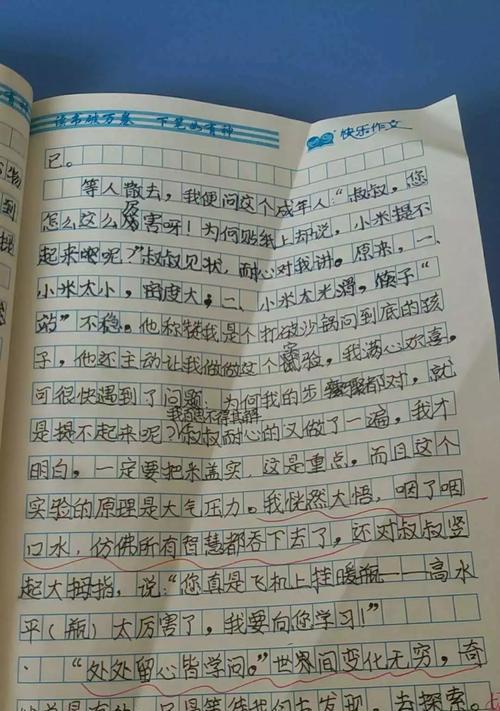 有神
读书破万卷 下笔如有神
快乐作文
物
到
提
已。
等人散去，我便问这个成年人：“叔叔，您
怎么这么厉害呀！为何贴纸上却说，小米提不
起来呢？”叔叔见状，耐心对我讲。原来，一、
小米太小，密度大，二、小米太光滑，筷子“
站”不稳。他称赞我是个打破沙锅问到底的孩
子，他还主动让我做做这个实验，我满心欢喜。
可很快遇到了问题：为何我的步骤都对，就
我百思不得其解
是提不起来呢？叔叔耐心的又做了一遍，我才
明白，一定要把米盖实，这是重点，而且这个
实验的原理是大气压力。我恍然大悟，咽了咽
口水，仿佛所有智慧都吞下去了，还对叔叔竖
起大拇指，说：“您真是飞机上挂暖瓶——高水
平（瓶）太厉害了，我要向您学习！”
“处处留心皆学问。”世界间变化无穷，奇
去发现，去探索。